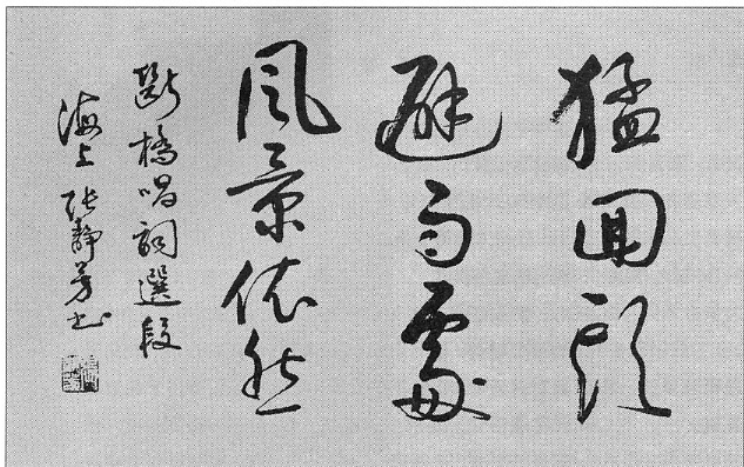 猛回頭
避雨處
風景依然
斷橋唱詞選段
海上張靜芳書